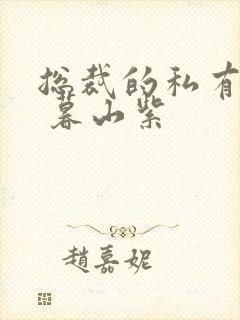 总裁的私有
暮山紫
趙嘉妮